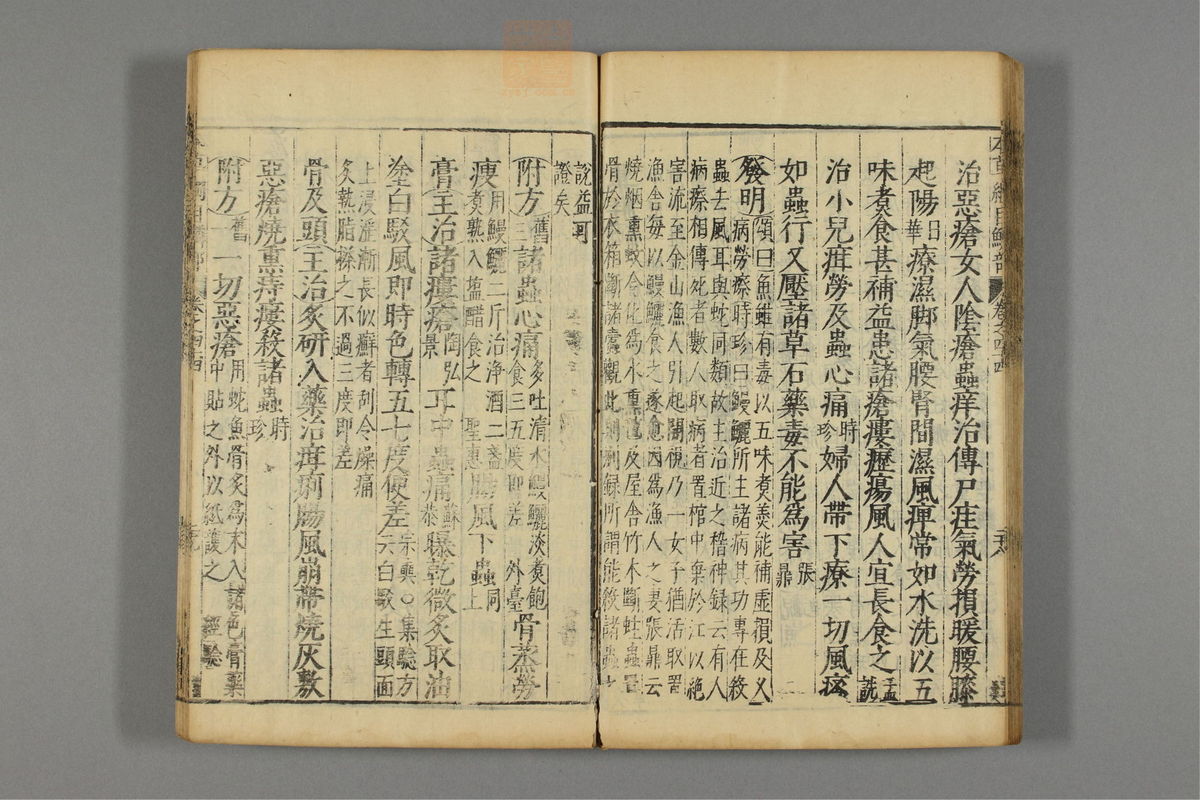 治惡瘡女人陰瘡蟲痒治傳尸疰氣勞損暖腰膝
起陽日華療濕脚氣腰腎間濕風痺常如水洗以五
味煮食甚補益患諸瘡瘻癧瘍風人宜長食之孟詵
治小兒疳勞及蟲心痛時珍婦人帶下療一切風瘙
如蟲行又壓諸草石藥毒不能爲害張鼎
發明頌曰魚雖有毒以五味煮羹能補虛損及久
病勞瘵時珍曰鰻鱺所主諸病其功專在殺
蟲去風耳與蛇同類故主治近之稽神録云有人
病瘵相傳死者數人取病者置棺中棄於江以絶
害流至金山漁人引起開視乃一女子猶活取置
漁舎每以鰻鱺食之遂愈因爲漁人之妻張鼎云
燒烟熏蚊令化爲水熏氊及屋舎竹木斷蛀蟲置
骨於衣箱斷諸蠹觀此則别録所謂能殺諸蟲之
說益可
證矣
附方舊三諸蟲心痛多吐清水鰻鱺淡煮飽食三五度即差外臺骨蒸勞
瘦用鰻鱺二斤治淨酒二盞煮熟入塩醋食之聖惠腸風下蟲同上
膏主治諸瘻瘡陶弘景耳中蟲痛蘇恭曝乾微炙取油
塗白駁風即時色轉五七度便差宗奭○集驗方云白駁生頭面
上浸淫漸長似癬者刮令燥痛
炙熟脂搽之不過三度即差
骨及頭主治炙研入藥治疳痢腸風崩帶燒灰敷
惡瘡燒熏痔瘻殺諸蟲時珍
附方舊一一切惡瘡用蛇魚骨炙爲末入諸色膏藥中貼之外以紙護之經驗